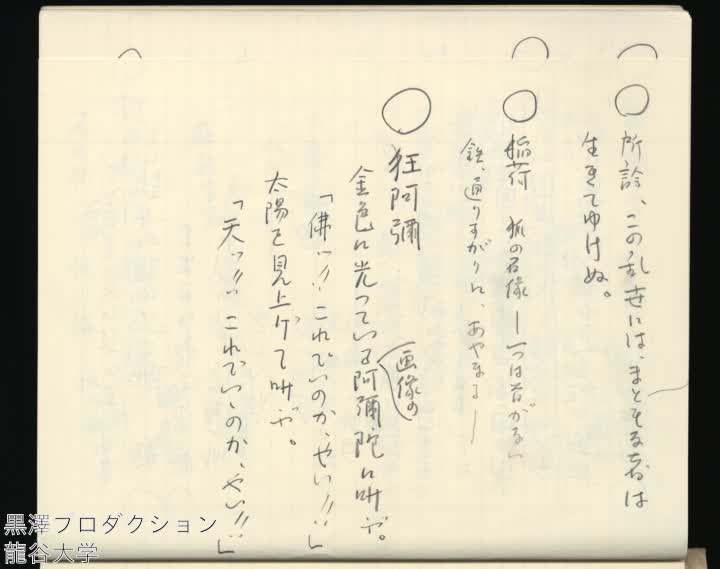 ○ 所詮、この乱世には、まともな者は
生きてゆけぬ。
○ 稲荷 狐の石像 ― 一つは首がない
鉄、通りすがりに、あやまる ―
○ 狂阿彌
金色に光っている画像の阿彌陀に叫ぶ。
「佛ッ!! これでいのか、やい!!」
太陽を見上げて叫ぶ。
「天ッ!! これでいゝのか、やい!!」
黒澤プロダクション
龍谷大学